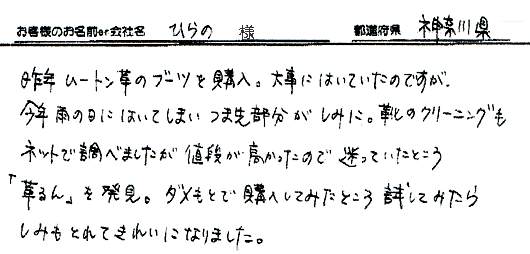 お客様のお名前or会社名 ひらの 様 都道府県 神奈川県
昨年 ムートン革のブーツを購入。大事にはいていたのですが、
今年 雨の日にはいてしまい つま先部分が しみに。靴のクリーニングも
ネットで調べましたが 値段が高かったので 迷っていたところ
「革るん」を発見。ダメもとで購入してみたところ 試してみたら
しみもとれてきれいになりました。